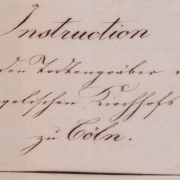 Instruction
den Todtengräber
gelischen Kirchhofs
zu Cöln.